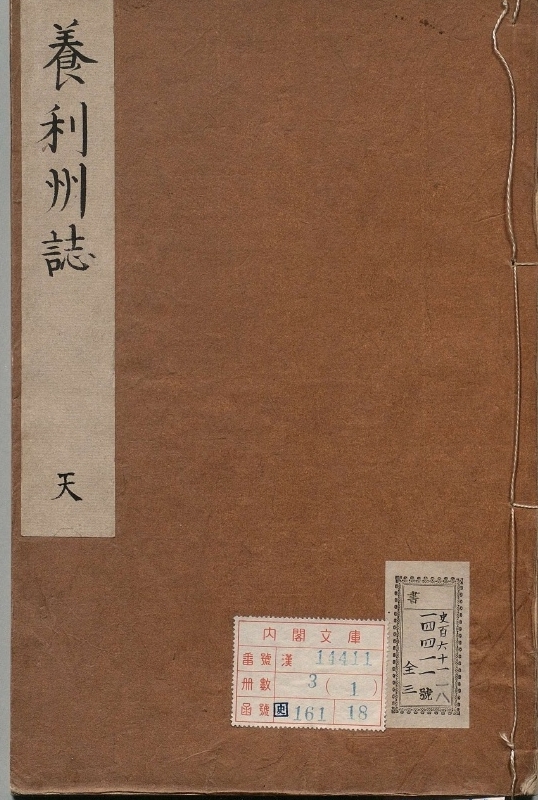 養利州誌
天
内閣文庫
番號 漢 14411
册數 3(1)
函號 史 161 18
書
史百六十一 一八
一四四一一號
全三